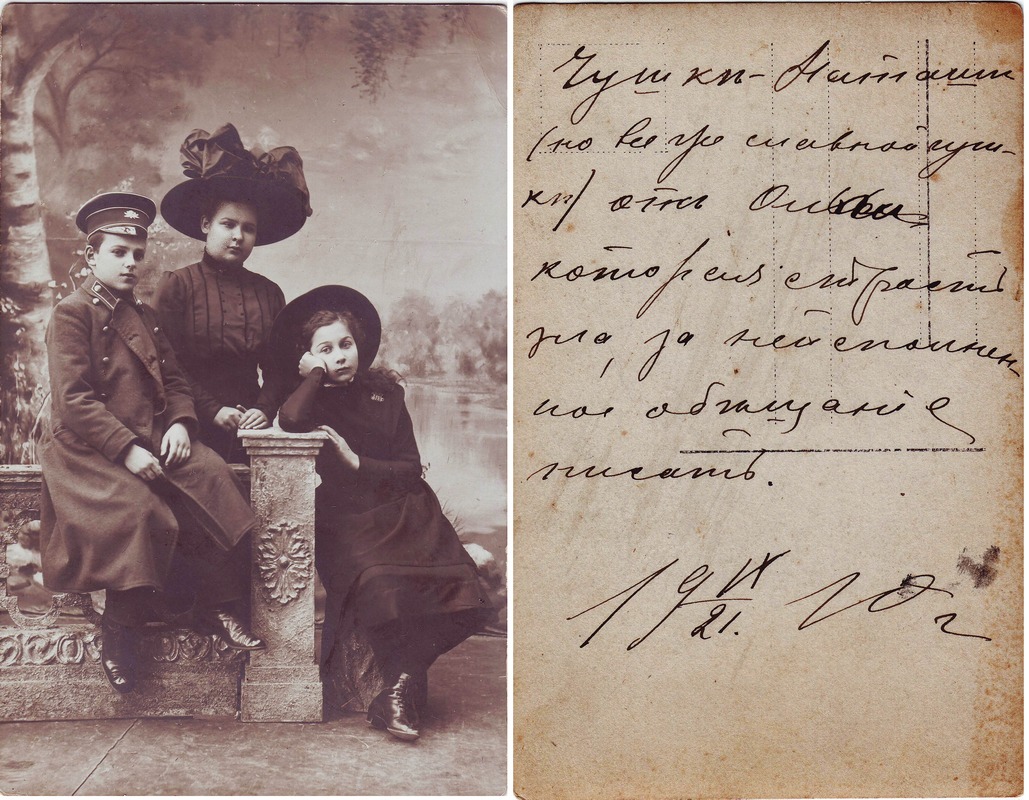 Чушкѣ- Наташѣ
(но все же славной чуш-
кѣ) отъ Ольги
которая страсть
зла, за неисполнен-
ное обѣщаніе
писать.
19 IX/21. 10 г